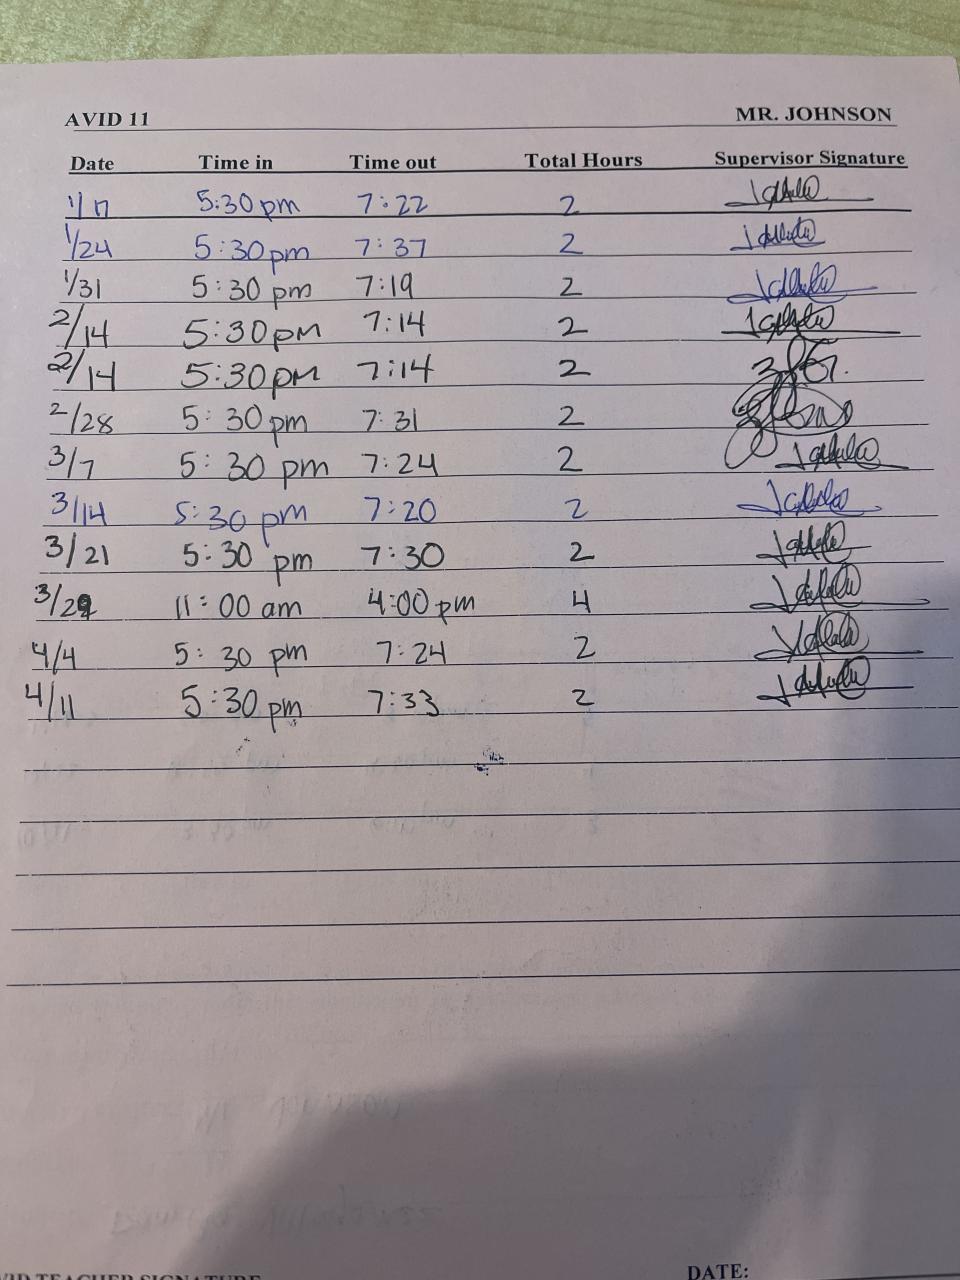 AVID 11 MR. JOHNSON
Date Time in Time out Total Hours Supervisor Signature
1/17 5:30 pm 7:22 2
1/24 5:30pm 7:37 2
1/31 5:30 pm 7:19 2
2/14 5:30pm 7:14 2
2/14 5:30pm 7:14 2
2/28 5:30 pm 7:31 2
3/7 5:30 pm 7:24 2
3/14 5:30 pm 7:20 2
3/21 5:30 pm 7:30 2
11:00 am 4:00 pm 4
4/4 5:30 pm 7:24 2
4/11 5:30 pm 7:33 2
TEACHER SIGNATURE DATE: